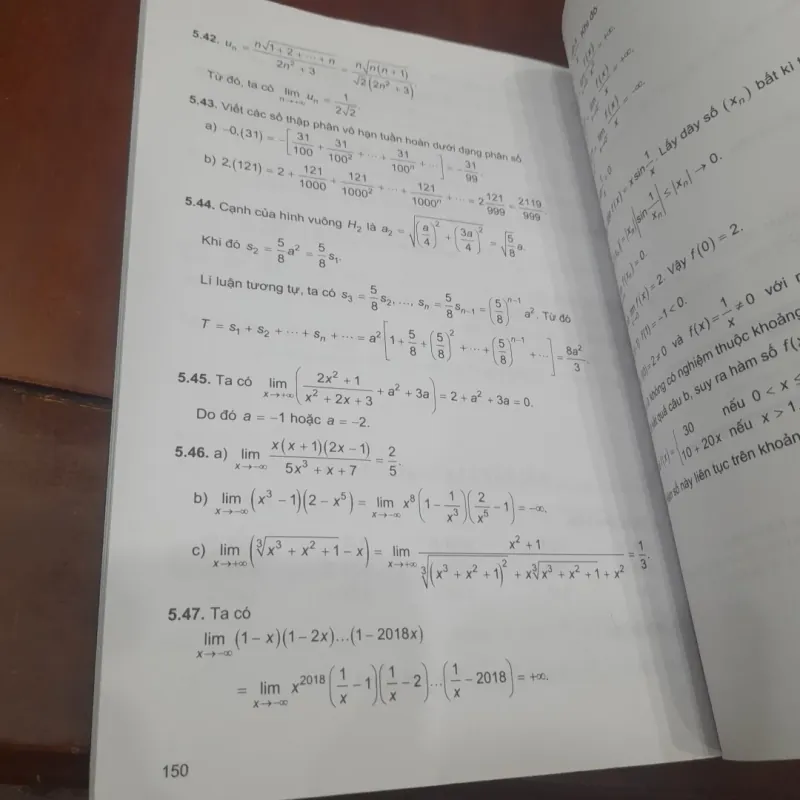 5.42. uₙ = n√(1 + 2 + ⋯ + n) / (2n² + 3) = n√(n(n + 1)) / (√2(2n² + 3))
Từ đó, ta có lim_{n→+∞} uₙ = 1/(2√2).
5.43. Viết các số thập phân vô hạn tuần hoàn dưới dạng phân số
a) −0,(31) = −[31/100 + 31/100² + ⋯ + 31/100ⁿ + ⋯] = −31/99.
b) 2,(121) = 2 + 121/1000 + 121/1000² + ⋯ + 121/1000ⁿ + ⋯ = 2 121/999 = 2119/999.
5.44. Cạnh của hình vuông H₂ là a₂ = √((a/4)² + (3a/4)²) = √(5/8) a.
Khi đó s₂ = 5/8 a² = 5/8 s₁.
Lí luận tương tự, ta có s₃ = 5/8 s₂, ..., sₙ = 5/8 sₙ₋₁ = (5/8)ⁿ⁻¹ a². Từ đó
T = s₁ + s₂ + ⋯ + sₙ + ⋯ = a²[1 + 5/8 + (5/8)² + ⋯ + (5/8)ⁿ⁻¹ + ⋯] = 8a²/3.
5.45. Ta có lim_{x→+∞} ((2x² + 1)/(x² + 2x + 3) + a² + 3a) = 2 + a² + 3a = 0.
Do đó a = −1 hoặc a = −2.
5.46. a) lim_{x→−∞} x(x + 1)(2x − 1)/(5x³ + x + 7) = 2/5.
b) lim_{x→−∞} (x³ − 1)(2 − x⁵) = lim_{x→−∞} x⁸(1 − 1/x³)(2/x⁵ − 1) = −∞.
c) lim_{x→+∞} (∛(x³ + x² + 1) − x) = lim_{x→+∞} (x² + 1)/(∛((x³ + x² + 1)²) + x∛(x³ + x² + 1) + x²) = 1/3.
5.47. Ta có
lim_{x→−∞} (1 − x)(1 − 2x)...(1 − 2018x)
= lim_{x→−∞} x²⁰¹⁸(1/x − 1)(1/x − 2)...(1/x − 2018) = +∞.
150
f(x) = x sin 1/x. Lấy dãy số (xₙ) bất kì
|sin 1/xₙ| ≤ |xₙ| → 0.
f(x) = 2. Vậy f(0) = 2.
= −1 < 0.
= 2 ≠ 0 và f(x) = 1/x ≠ 0 với
không có nghiệm thuộc khoảng
quả câu b, suy ra hàm số f(
30 nếu 0 < x ≤
10 + 20x nếu x > 1
số này liên tục trên khoảng